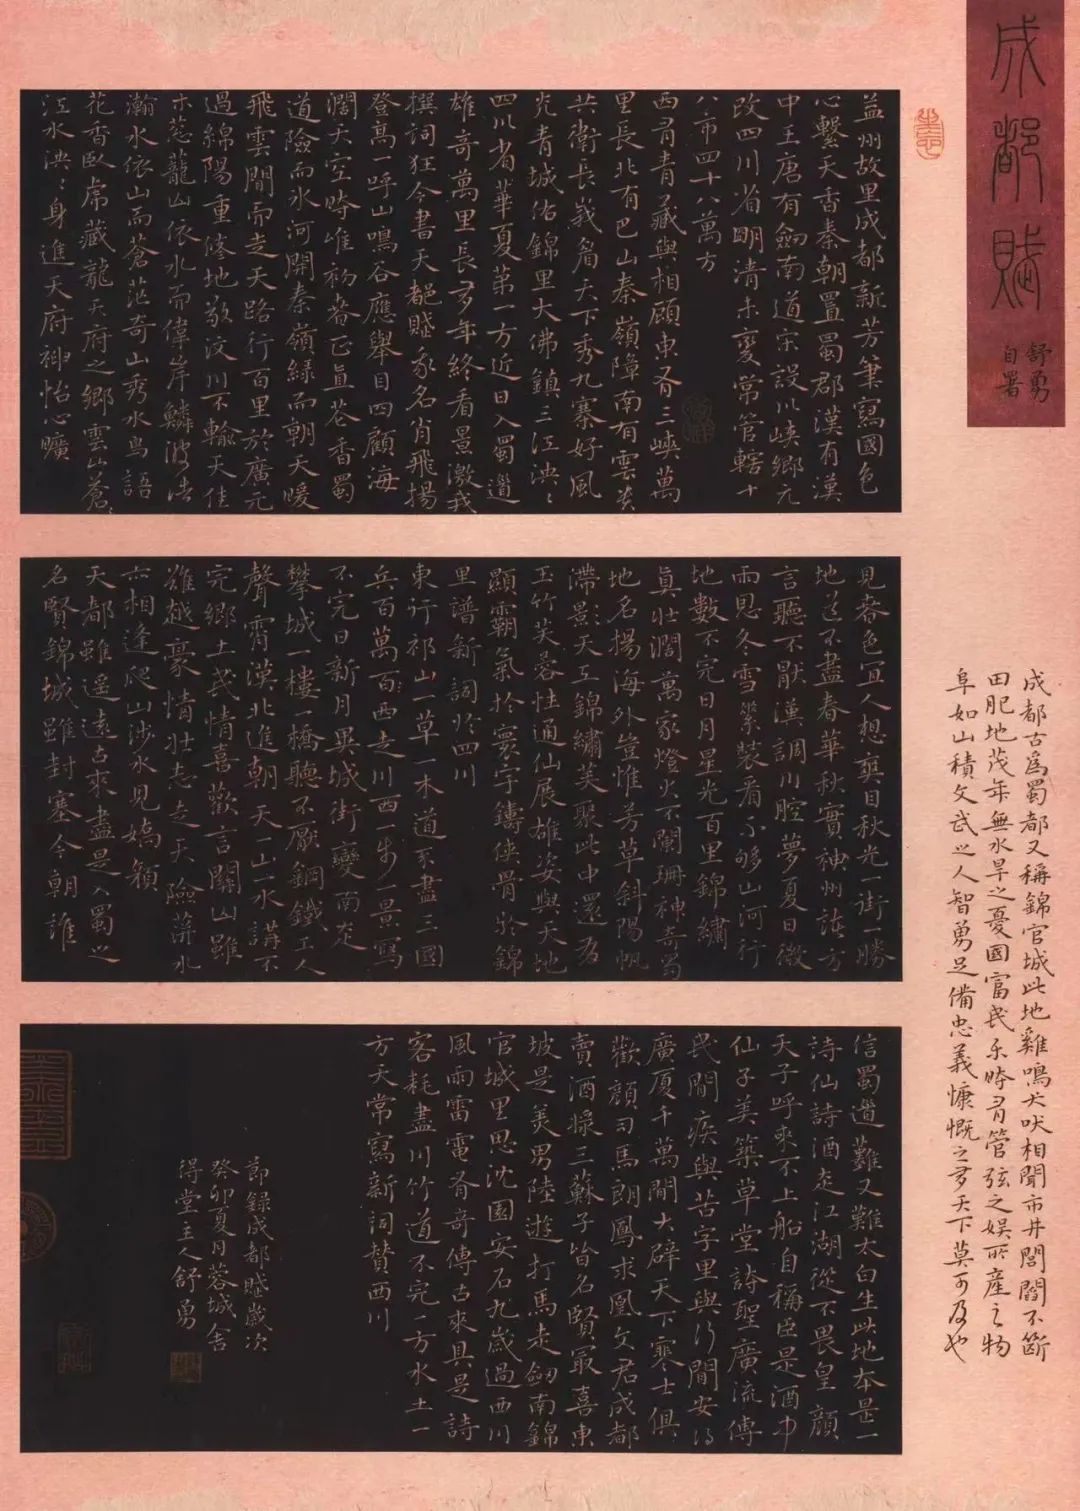 成都賦
舒勇
自署
益州故里成都新芳筆寫國色
心繫天香秦朝置蜀郡漢有漢
中王唐有劍南道宋設川峽鄉元
改四川省明清未變常管轄十
八市四十八萬方
西有青藏與相顧東有三峽萬
里長北有巴山秦嶺障南有雲貴
共衛長峩眉天下秀九寨好風
光青城佑錦里大佛鎮三江泱〻
四川省華夏第一方近日入蜀道
雄奇萬里長多年終看景激我
撰詞狂今書天都賦家名肖飛揚
登高一呼山鳴谷應舉目四顧海
濶天空時維初春正直花香蜀
道險而水河開秦嶺綠而朝天暖
飛雲間而走天路行百里於廣元
過綿陽重修地敬汶川不輸天佳
木蔥蘢山依水而偉岸鱗波浩
瀚水依山而蒼茫奇山秀水鳥語
花香臥虎藏龍天府之鄉雲山蒼〻
江水泱〻身進天府神怡心曠
見春色宜人想爽目秋光一街一勝
地道不盡春華秋實神州諸方
言聽不厭漢調川腔夢夏日微
雨思冬雪素裝看不够山河行
地數不完日月星光百里錦繡
真壯濶萬家燈火不闌珊神奇蜀
地名揚海外豈惟芳草斜陽帆
帶影天工錦繡美聚此中還有
玉竹芙蓉性通仙展雄姿與天地
顯霸氣於寰宇鑄俠骨於錦
里譜新詞於四川
東行祁山一草一木道不盡三國
兵百萬西走川西一步一景寫
不完日新月異城街變南走
攀城一樓一橋聽不厭鋼鐵工人
聲霄漢北進朝天一山一水講不
完鄉土民情喜歡言關山雖
難越豪情壯志走天險萍水
亦相逢爬山涉水見嬌顏
天都雖遥遠古來盡是入蜀之
名賢錦城雖封塞今朝誰
信蜀道難又難太白生此地本是一
詩仙詩酒走江湖從不畏皇顏
天子呼來不上船自稱臣是酒中
仙子美築草堂詩聖廣流傳
民間疾與苦字里與行間安得
廣厦千萬間大辟天下寒士俱
歡顏司馬朗鳳求凰文君成都
賣酒掾三蘇子皆名賢最喜東
坡是美男陸遊打馬走劍南錦
官城里思沈園安石九歲過西川
風雨雷電有奇傳古來具是詩
客耗盡川竹道不完一方水土一
方天常寫新詞贊西川
節錄成都賦歲次
癸卯夏月蓉城舍
得堂主人舒勇
成都古爲蜀都又稱錦官城此地雞鳴犬吠相聞市井閭閻不斷
田肥地茂年無水旱之憂國富民樂時有管弦之娱所產之物
阜如山積文武之人智勇足備忠義慷慨之多天下莫可及也